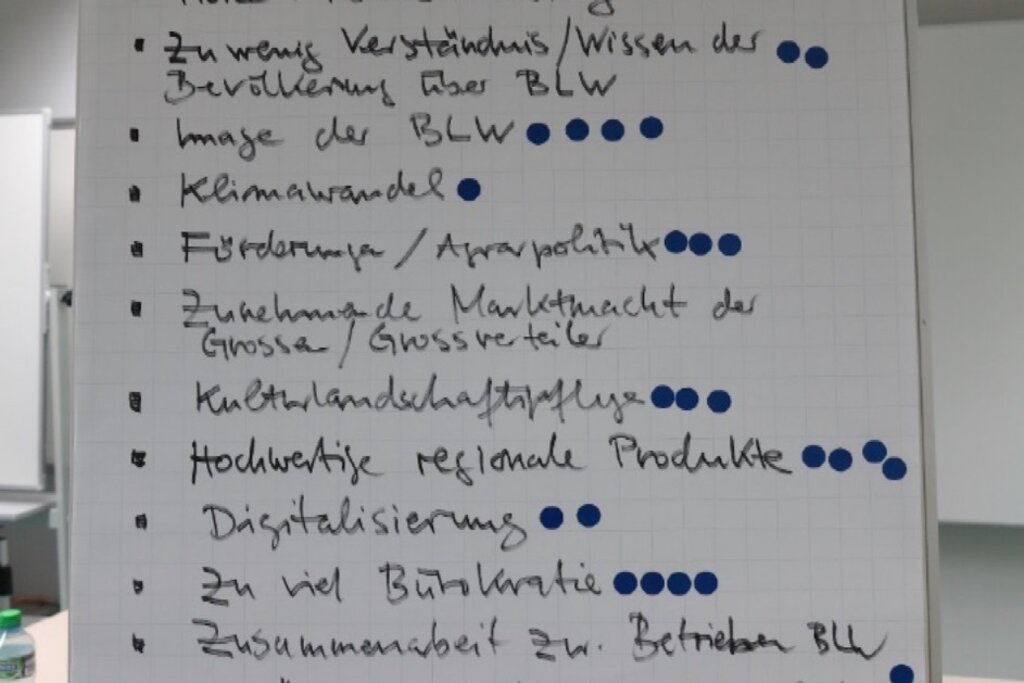 • Zu wenig Verständnis/Wissen der
Bevölkerung über BLW
• Image der BLW
• Klimawandel
• Förderungen / Agrarpolitik
• Zunehmende Marktmacht der
Grossen / Grossverteiler
• Kulturlandschaftspflege
• Hochwertige regionale Produkte
• Digitalisierung
• Zu viel Bürokratie
• Zusammenarbeit zw. Betrieben BLW